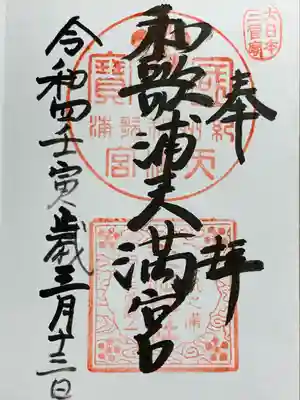 奉拝
和歌浦天満宮
令和四壬寅歳三月十二日
大日本
三菅廟